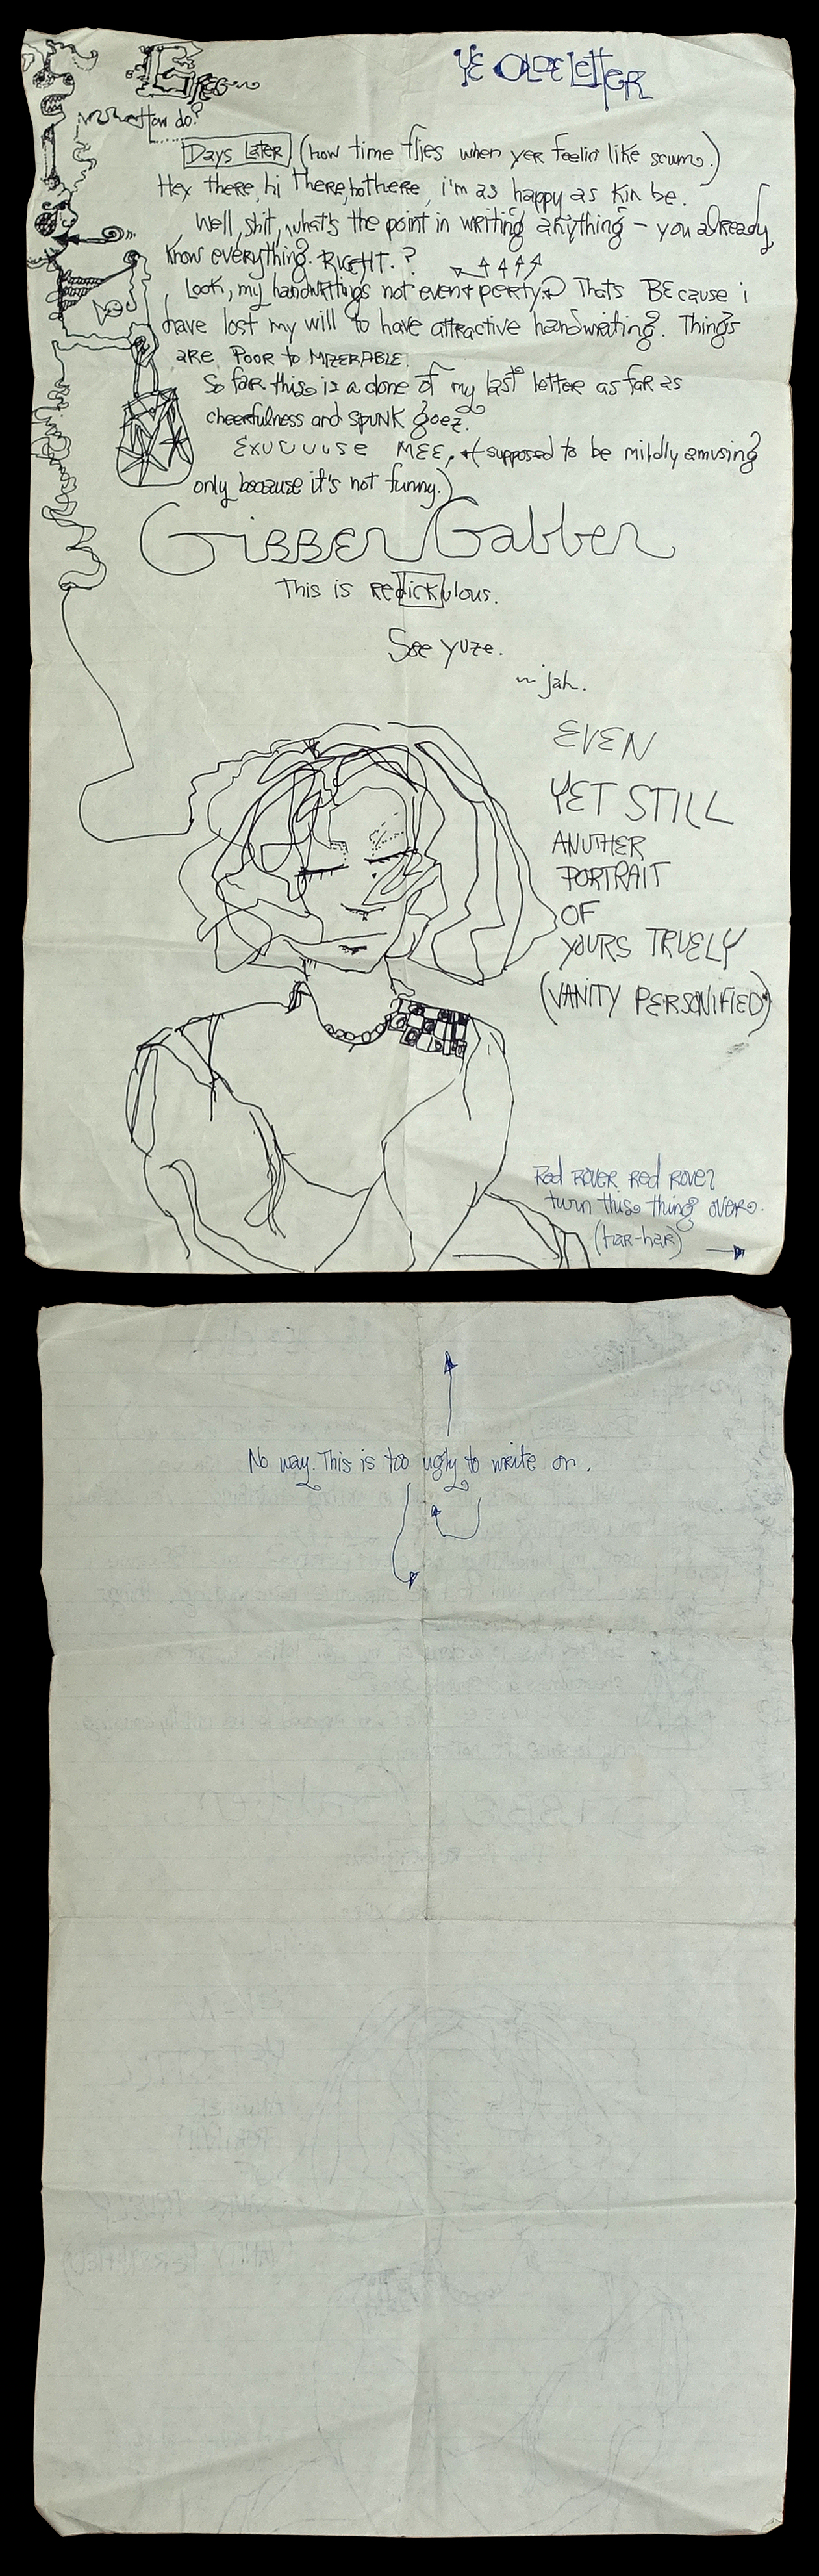 YE OLDE LETTER
GREG
How do?
Days Later (how time flies when yer feelin' like scum.)
Hey there, hi there, ho there, i'm as happy as kin be.
Well, shit, what's the point in writing anything – you already
know everything. RIGHT.?
Look, my handwritings not even perty. Thats BEcause i
have lost my will to have attractive handwriting. Things
are POOR to MIZERABLE.
So far this is a clone of my last letter as far as
cheerfulness and SPUNK goez.
Exuuuuse MEE, (supposed to be mildly amusing
only because it's not funny.)
GIBBER Gabber
This is redickulous.
See yuze.
~ jah.
EVEN
YET STILL
ANUTHER
PORTRAIT
OF
YOURS TRUELY
(VANITY PERSONIFIED)
Red ROVER Red ROVER
turn this thing OVER.
(har-har)
No way. This is too ugly to write on.